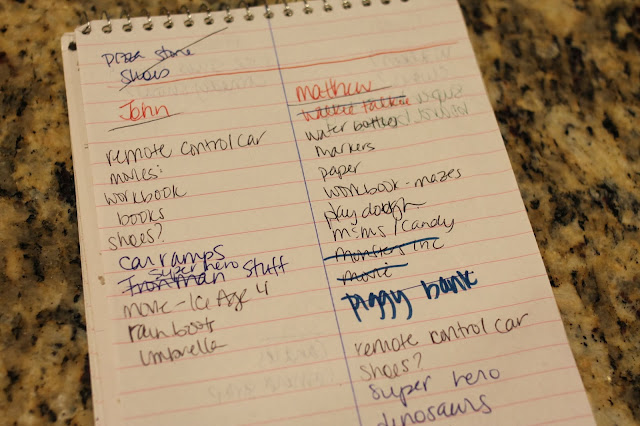 pizza stone
shoes
John
remote control car
movies:
workbook
books
shoes?
car ramps
super hero
Iron man stuff
movie - Ice Age 4
rain boots
umbrella
Mathew
walkie talkie
water bottles
markers
paper
workbook - mazes
play dough
m&ms / candy
monsters inc
movie
piggy bank
remote control car
shoes?
super hero
dinosaurs